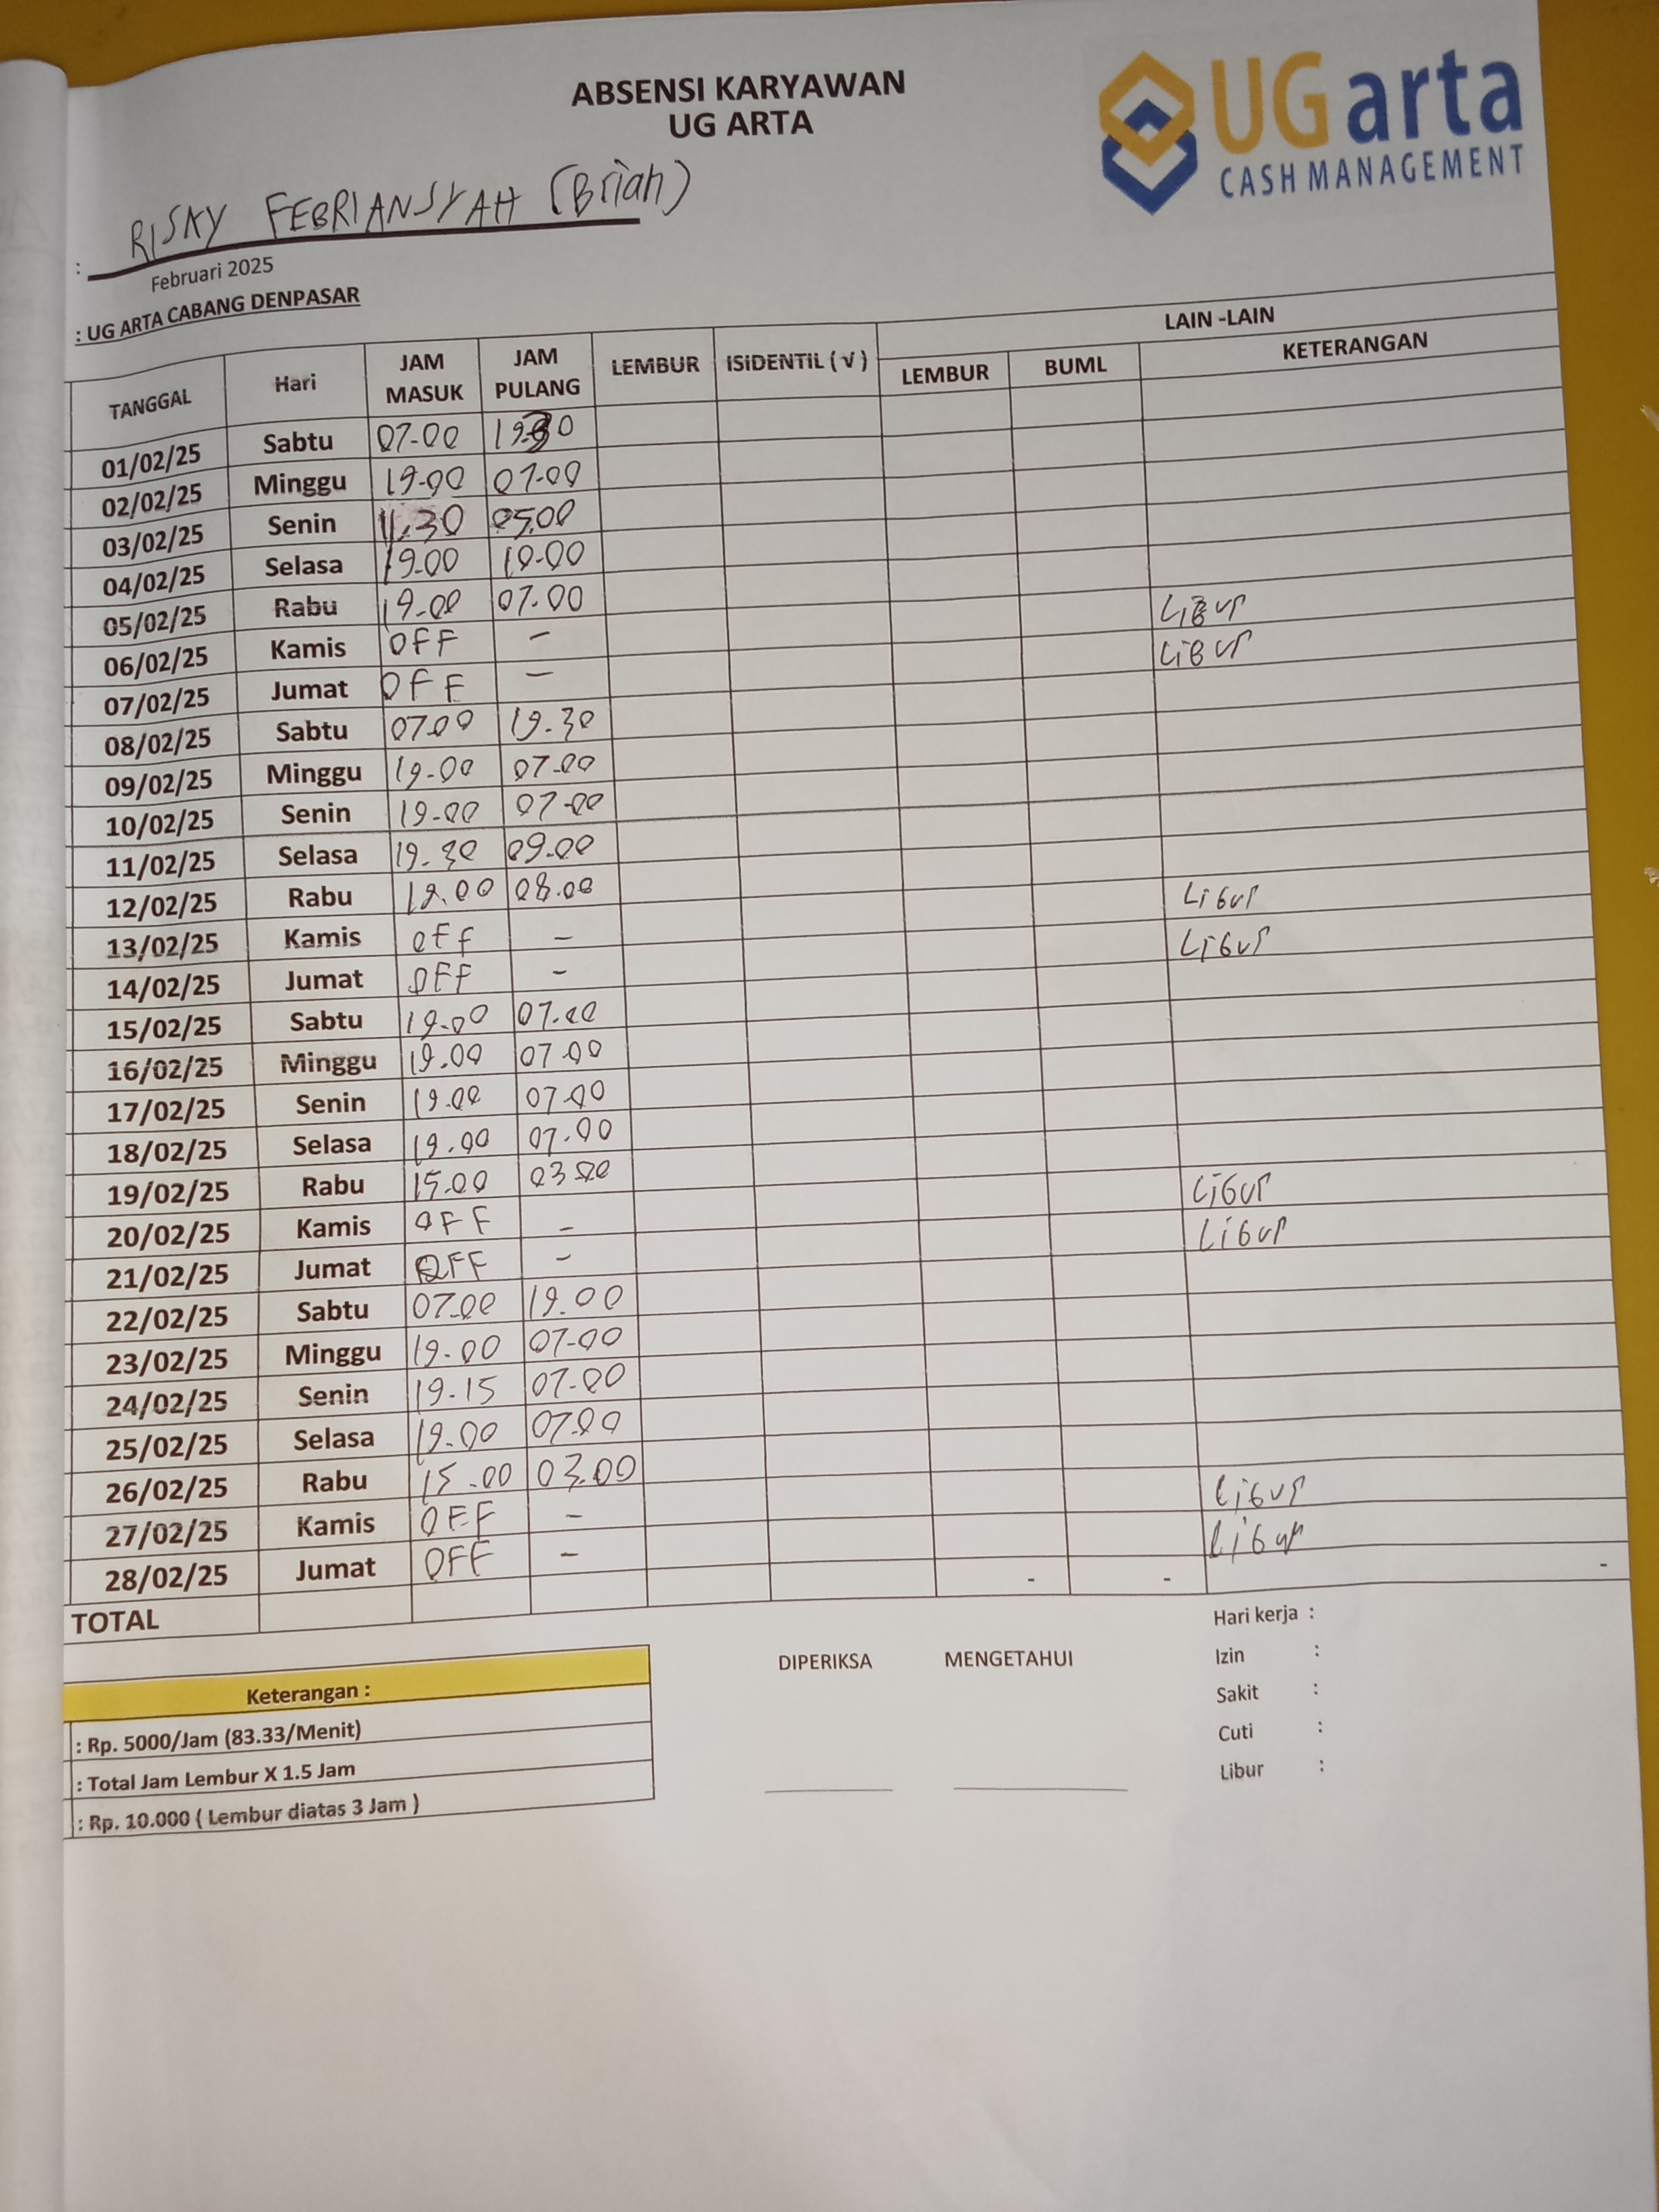 ABSENSI KARYAWAN
UG ARTA
UG arta
CASH MANAGEMENT
: RISKY FEBRIANSYAH (Brian)
Februari 2025
: UG ARTA CABANG DENPASAR
TANGGAL Hari JAM MASUK JAM PULANG LEMBUR ISIDENTIL (√) LAIN -LAIN
LEMBUR BUML KETERANGAN
01/02/25 Sabtu 07-00
02/02/25 Minggu 19-00 07-00
03/02/25 Senin 11.30 05.00
04/02/25 Selasa 19-00 19-00
05/02/25 Rabu 19-00 07.00
06/02/25 Kamis OFF - LiBur
07/02/25 Jumat OFF - LiBur
08/02/25 Sabtu 07.00 19.30
09/02/25 Minggu 19-00 07-00
10/02/25 Senin 19-00 07-00
11/02/25 Selasa 19.30 09.00
12/02/25 Rabu 08.00
13/02/25 Kamis OFF - Libur
14/02/25 Jumat OFF - Libur
15/02/25 Sabtu 19.00 07.00
16/02/25 Minggu 19.00 07.00
17/02/25 Senin 19.00 07.00
18/02/25 Selasa 19.00 07.00
19/02/25 Rabu 15.00 03.00
20/02/25 Kamis OFF - Libur
21/02/25 Jumat OFF - Libur
22/02/25 Sabtu 07.00 19.00
23/02/25 Minggu 19.00 07-00
24/02/25 Senin 19-15 07.00
25/02/25 Selasa 19.00 07.00
26/02/25 Rabu 15.00 03.00
27/02/25 Kamis OFF - Libur
28/02/25 Jumat OFF - Libur
TOTAL - - -
Keterangan :
: Rp. 5000/Jam (83.33/Menit)
: Total Jam Lembur X 1.5 Jam
: Rp. 10.000 ( Lembur diatas 3 Jam )
DIPERIKSA MENGETAHUI
Hari kerja :
Izin :
Sakit :
Cuti :
Libur :